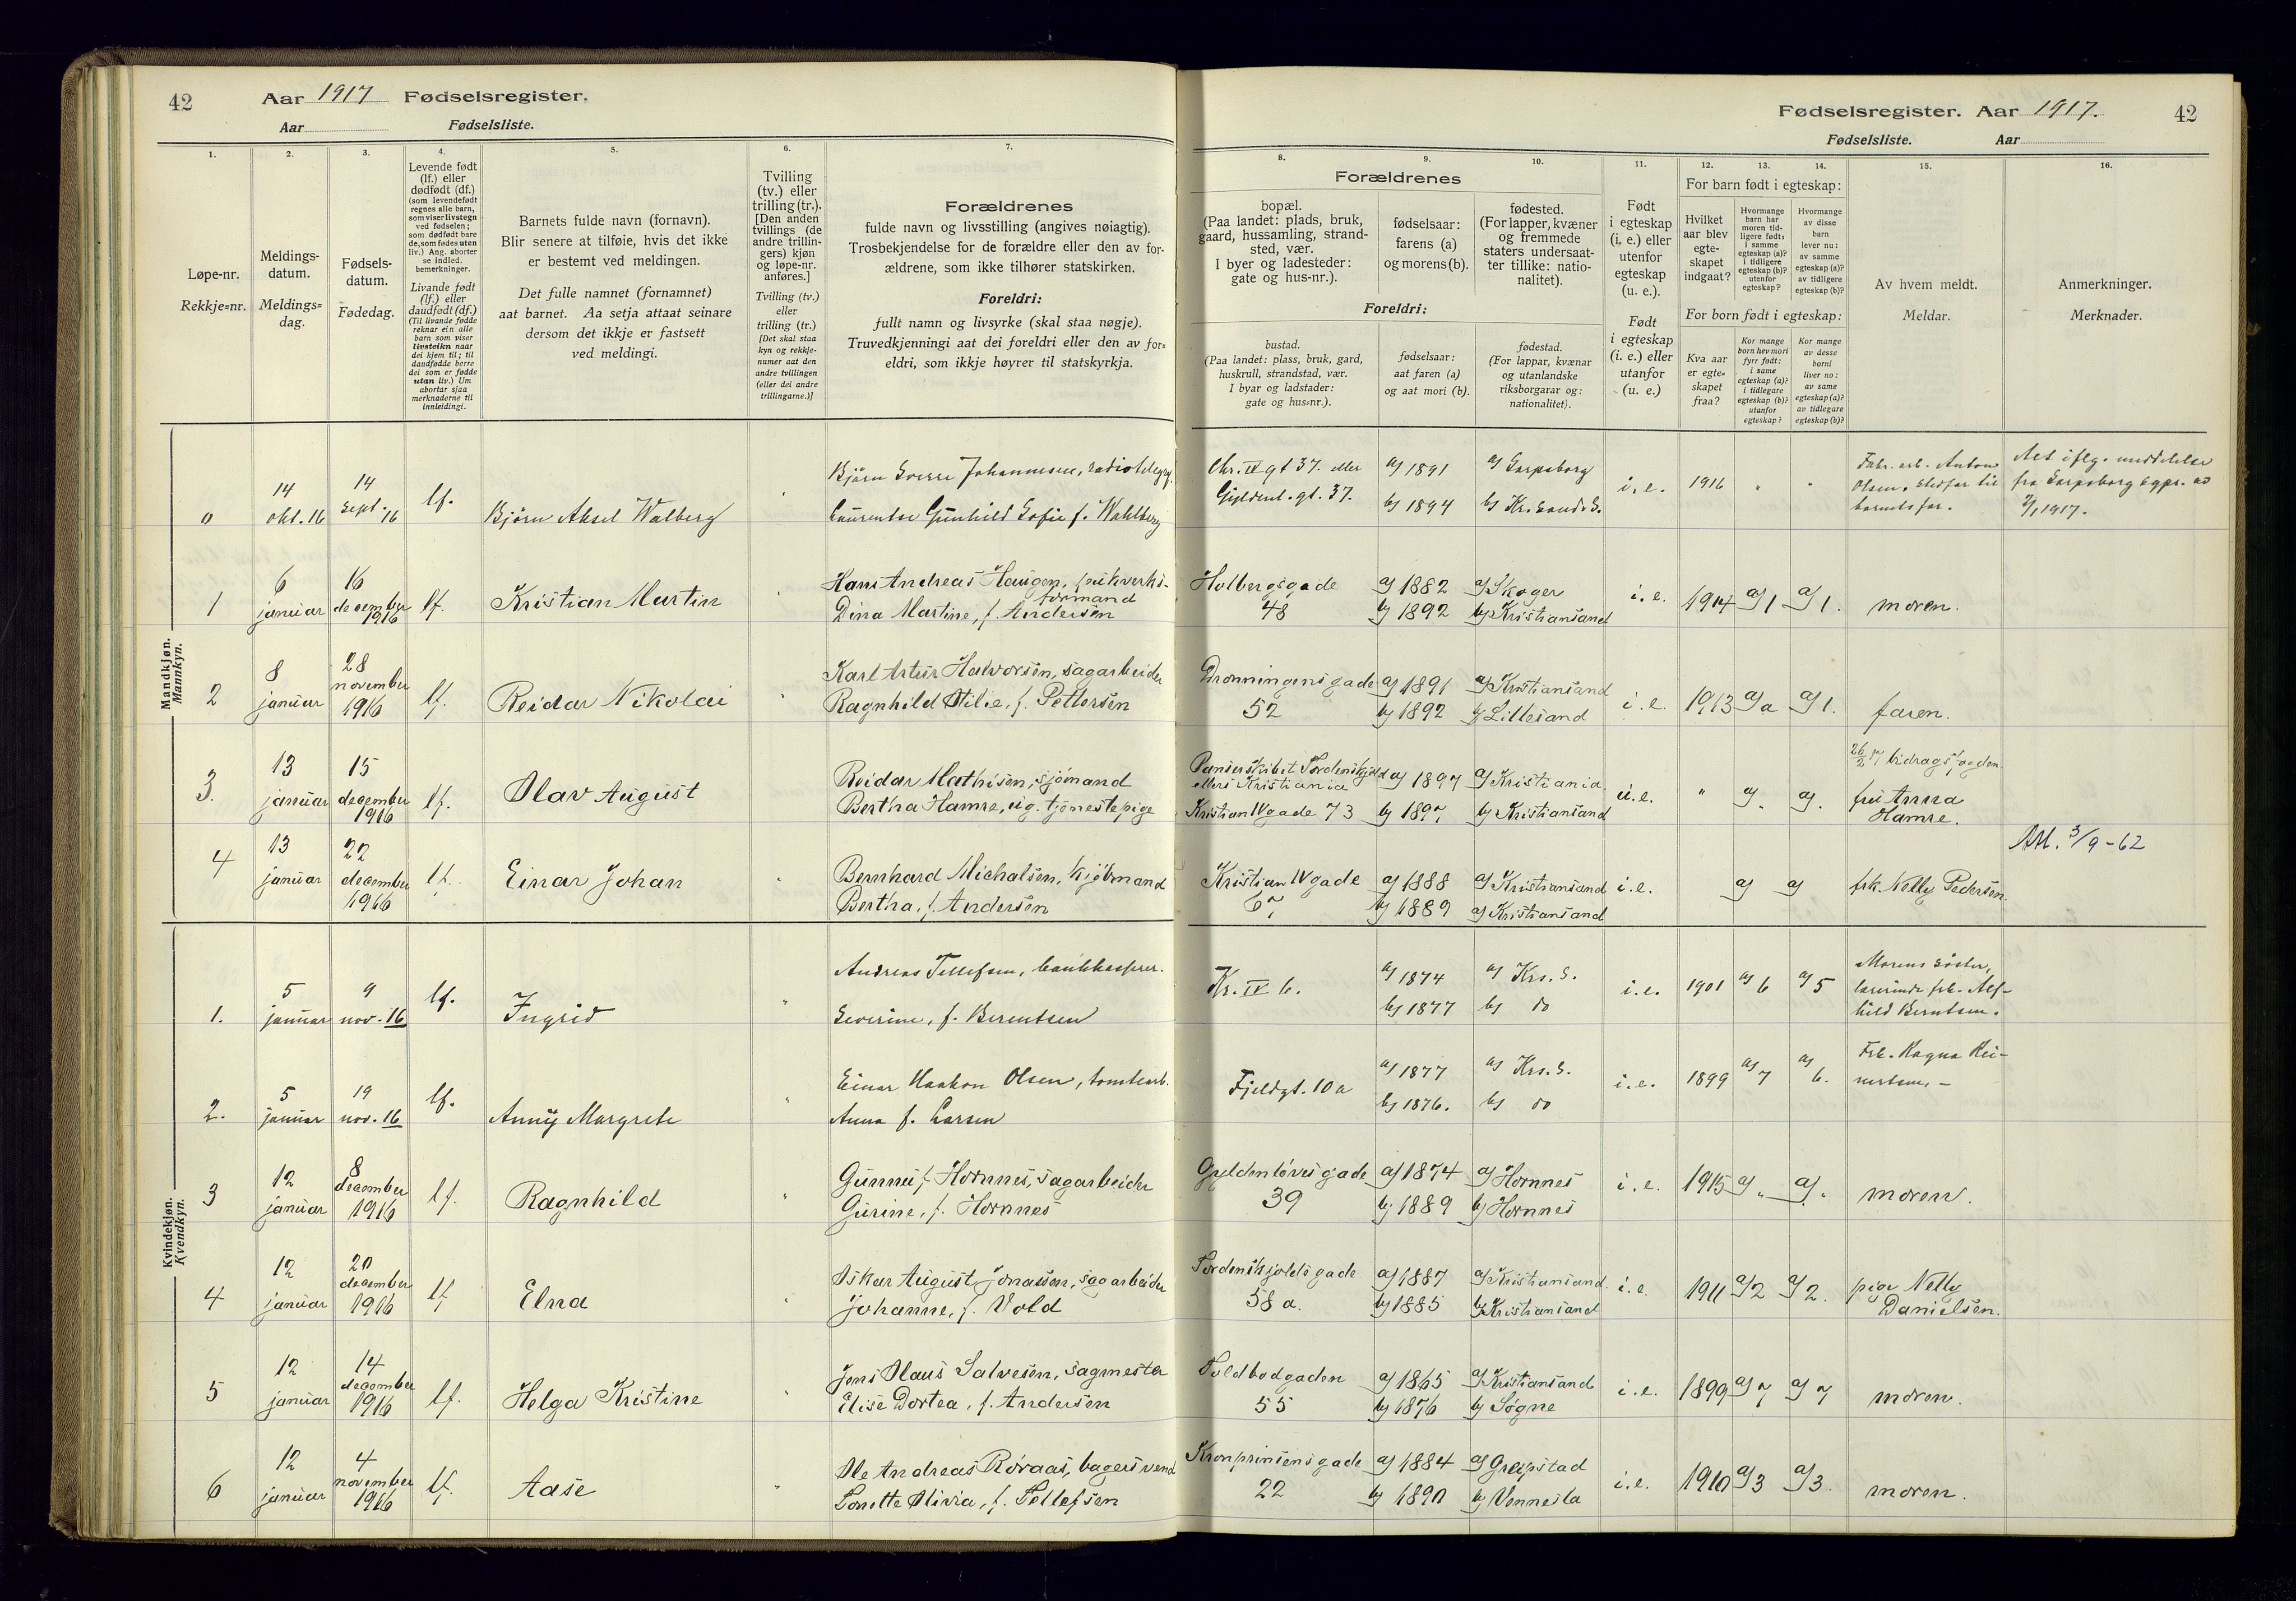 42 Aar 1917 Fødselsregister.
Aar Fødselsliste.
Fødselsregister. Aar 1917. 42
Fødselsliste. Aar
1. 2. 3. 4. 5. 6. 7.
Løpe-nr.
Rekkje=nr.
Meldings-
datum.
Meldings=
dag.
Fødsels-
datum.
Fødedag.
Levende født
(lf.) eller
dødfødt (df.)
(som levendefødt
regnes alle barn,
som viser livstegn
ved fødselen;
som dødfødt bare
de, som fødes uten
liv.) Ang. aborter
se indled.
bemerkninger.
Livande født
(lf.) eller
daudfødt (df.)
(Til livande fødde
reknar ein alle
barn som viser
livsteikn naar
dei kjem til; til
daudfødde berre
dei som er fødde
utan liv.) Um
abortar sjaa
merknaderne til
innleidingi.
Barnets fulde navn (fornavn).
Blir senere at tilføie, hvis det ikke
er bestemt ved meldingen.
Det fulle namnet (fornamnet)
aat barnet. Aa setja attaat seinare
dersom det ikkje er fastsett
ved meldingi.
Tvilling
(tv.) eller
trilling (tr.).
[Den anden
tvillings (de
andre trillin-
gers) kjøn
og løpe-nr.
anføres.]
Tvilling (tv.)
eller
trilling (tr.)
[Det skal staa
kyn og rekkje-
numer aat den
andre tvillingen
(eller dei andre
trillingarne.)]
Forældrenes
fulde navn og livsstilling (angives nøiagtig).
Trosbekjendelse for de forældre eller den av for-
ældrene, som ikke tilhører statskirken.
Foreldri:
fullt namn og livsyrke (skal staa nøgje).
Truvedkjenningi aat dei foreldri eller den av for=
eldri, som ikkje høyrer til statskyrkja.
8. 9. 10. 11. 12. 13. 14. 15. 16.
Forældrenes
bopæl.
(Paa landet: plads, bruk,
gaard, hussamling, strand-
sted, vær.
I byer og ladesteder:
gate og hus-nr.).
fødselsaar:
farens (a)
og morens (b).
fødested.
(For lapper, kvæner
og fremmede
staters undersaat-
ter tillike: natio-
nalitet).
Foreldri:
bustad.
(Paa landet: plass, bruk, gard,
huskrull, strandstad, vær.
I byar og ladstader:
gate og hus=nr.).
fødselsaar:
aat faren (a)
og aat mori (b).
fødestad.
(For lappar, kvænar
og utanlandske
riksborgarar og:
nationalitet).
Født
i egteskap
(i. e.) eller
utenfor
egteskap
(u. e.).
Født
i egteskap
(i. e.) eller
utanfor
(u. e.)
For barn født i egteskap:
Hvilket
aar blev
egte-
skapet
indgaat?
Hvormange
barn har
moren tid-
ligere født:
i samme
egteskap (a)?
i tidligere
egteskap (b)?
utenfor
egteskap?
Hvormange
av disse
barn
lever nu:
av samme
egteskap (a)?
av tidligere
egteskap (b)?
For born født i egteskap:
Kva aar
er egte=
skapet
fraa?
Kor mange
born hev mori
fyrr født:
i same
egteskap (a)?
i tidlegare
egteskap (b)?
utanfor
egteskap?
Kor mange
av desse
borni
liver no:
av same
egteskap (a)?
av tidlegare
egteskap (b)?
Av hvem meldt.
Meldar.
Anmerkninger.
Merknader.
Mandkjøn.
Mannkyn.
14 14
0 okt. 16 Sept. 16 lf. Bjørn Aksel Walberg
Bjørn Sverre Johannesen, radiotelegrf.
Laurentse Gunhild Sofie f. Wahlberg
Chr. IV gt 37. eller a) 1891 a) Sarpsborg i. e. 1916
Gyldenl. gt. 37. b) 1894 b) Kr.sand. S.
Fabr. arb. Anton
Olsen, stedfar til
barnets far.
fra Sarpsborg
1917.
6 16
1 januar december 1916 lf. Kristian Martin
Hans Andreas Haugen,
formand
Dina Martine, f. Andersen
Holbergsgade a) 1882 a) Skoger i. e. 1914 a) 1 a) 1. moren.
48 b) 1892 b) Kristiansand
8 28
2 januar november 1916 lf. Reidar Nikolai
Karl Artur Halvorsen, sagarbeider
Ragnhild Otilie, f. Pettersen
Dronningensgade a) 1891 a) Kristiansand i. e. 1913 a) a) 1. faren.
52 b) 1892 b) Lillesand
13 15
3. januar december 1916 lf. Olav August
Reidar Mathisen, sjömand
Bertha Hamre, ug. tjenestepige
Panserskibet Tordenskjold a) 1897 a) Kristiania u. e. " a) a).
ellers Kristiania
Kristian IV gade 73 b) 1897 b) Kristiansand
26/2 17 bidragsfogden
fru Anna
Hamre.
13 22
4 januar december 1916 lf. Einar Johan
Bernhard Michalsen, kjöbmand
Bertha, f. Andersen
Kristian IV gade a) 1888 a) Kristiansand i. e. a) a) frk. Nelly Pedersen.
67 b) 1889 a) Kristiansand
Att. 3/9-62
Kvindekjøn.
Kvendkyn.
5 9
1. januar nov. 16 lf. Ingrid
Andreas Tellefsen, bankkasserer.
Severine, f. Berentsen
Kr. IV 6. a) 1874 a) Krs. S. i. e. 1901 a) 6 a) 5
b) 1877 b) do
Morens söster,
lærerinde frk. Alf-
hild Berntsen.
5 19
2. januar nov. 16 lf. Anny Margrete
Einar Haakon Olsen, tomtearb.
Anna f. Larsen
Fjeldgt. 10a a) 1877 a) Krs. S. i. e. 1899 a) 7 a) 6.
b) 1876. b) do
Frk. Ragna Rei-
nertsen. -
12 8
3 januar december 1916 lf. Ragnhild
Gunnuf Hornnes, sagarbeider
Gurine, f. Hornnes
Gyldenlövesgade a) 1874 a) Hornnes i. e. 1915 a) „ a) „ moren.
39 b) 1889 b) Hornnes
12 20
4 januar december 1916 lf. Elna
Oskar August Jonassen, sagarbeider
Johanne, f. Vold
Tordenskjolds gade a) 1887 a) Kristiansand i. e. 1911 a) 2 a) 2. pige Nelly
58 a. b) 1885 b) Kristiansand Danielsen.
12 14
5 januar december 1916 lf. Helga Kristine
Jens Olaus Salvesen, sagmester
Elise Dortea, f. Andersen
Toldbodgaden a) 1865 a) Kristiansand i. e. 1899 a) 7 a) 7 moren.
55 b) 1876 b) Søgne
12 4
6 januar november 1916 lf. Aase
Ole Andreas Röraas, bagersvend
Tonette Olivia, f. Tellefsen
Kronprinsensgade a) 1884 a) Greipstad i. e. 1910 a) 3 a) 3. moren.
22 b) 1890 b) Vennesla